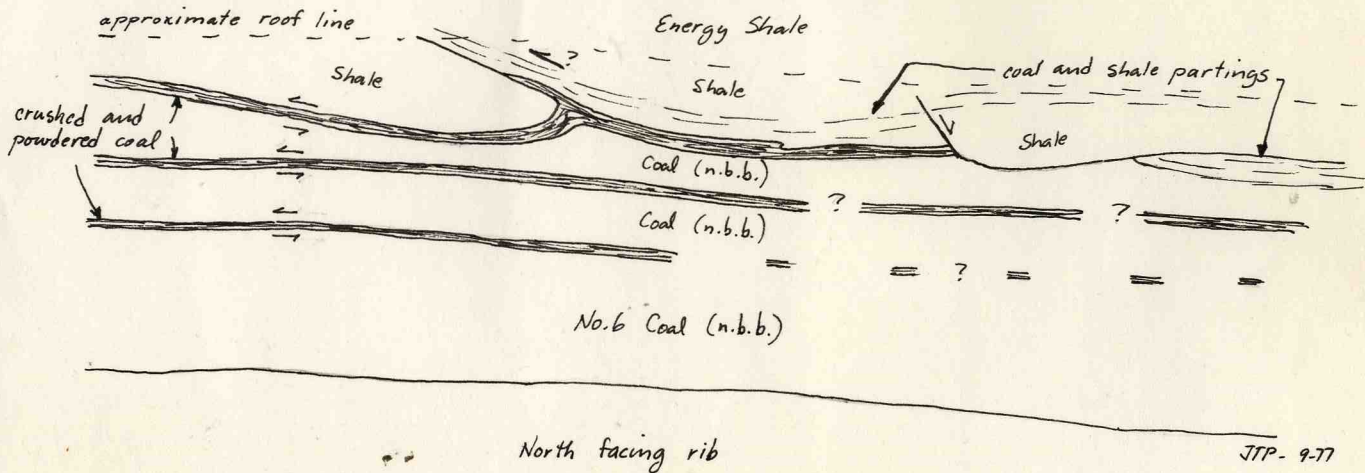 approximate roof line
Energy Shale
?
Shale
Shale
coal and shale partings
crushed and
powdered coal
Shale
Coal (n.b.b.)
?
?
Coal (n.b.b.)
?
No.6 Coal (n.b.b.)
North facing rib
JTP- 9-77